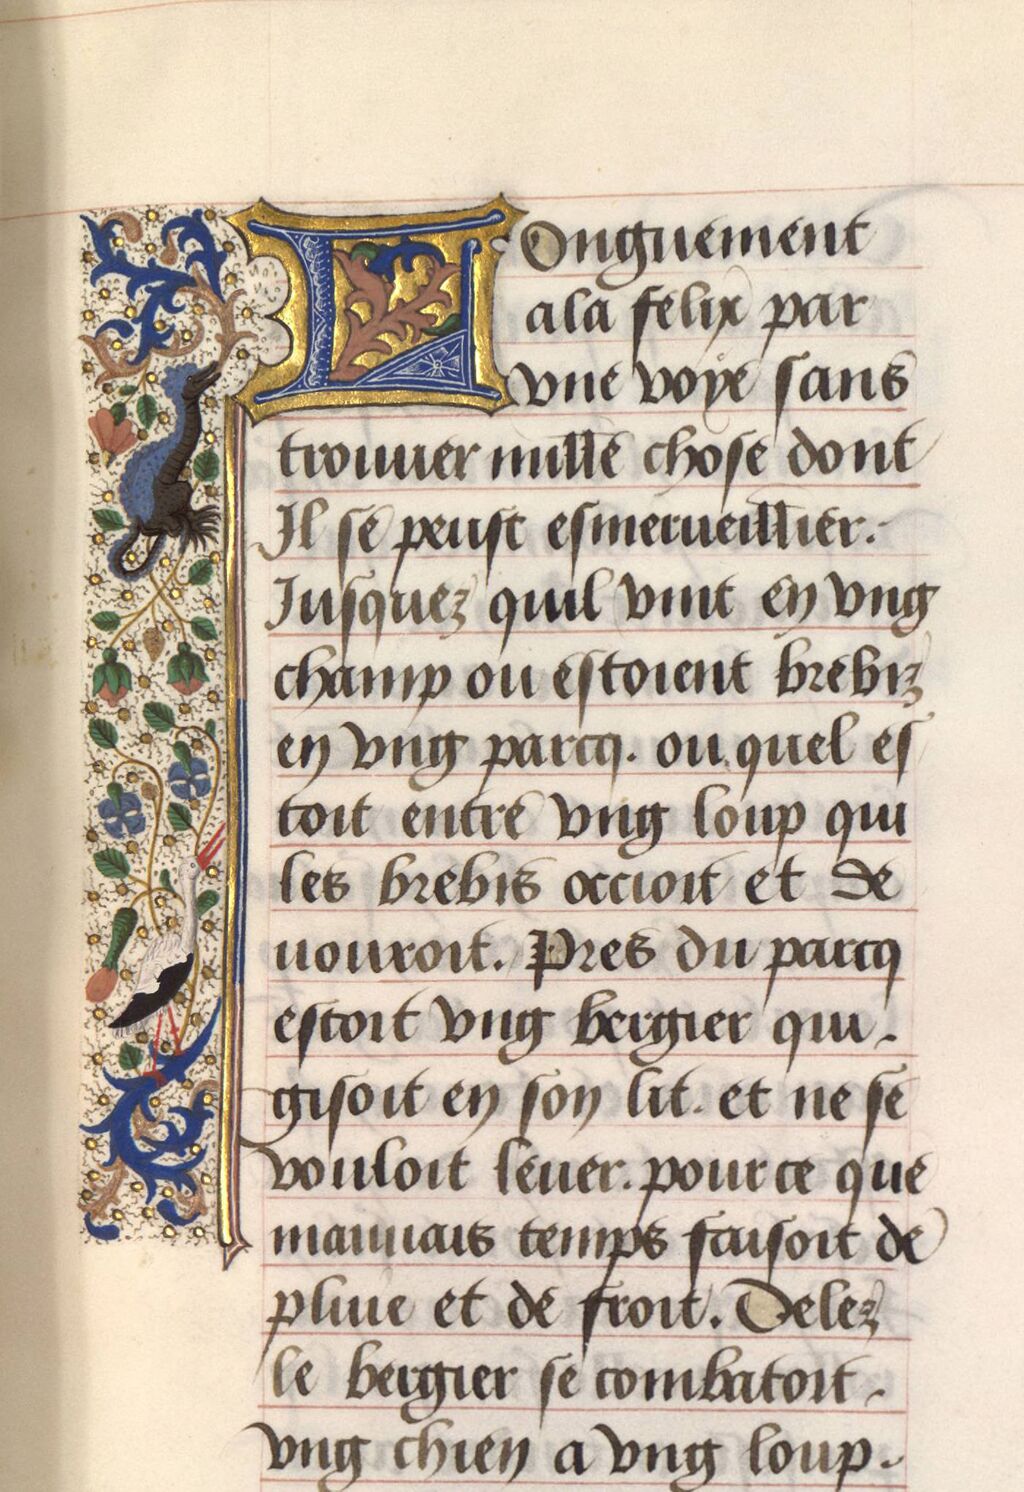 Longuement
ala felix par
vne voye sans
trouuer nulle chose dont
Il se peust esmerueillier.
Jusquez quil vint en vng
champ ou estoient brebiz
en vng parcq. ou quel es
toit entre vng loup qui
les brebis occioit et de
uouroit. Pres du parcq
estoit vng bergier qui.
gisoit en son lit. et ne se
vouloit leuer. pour ce que
mauuais temps faisoit de
pluie et de froit. Delez
le bergier se combatoit.
vng chien a vng loup.